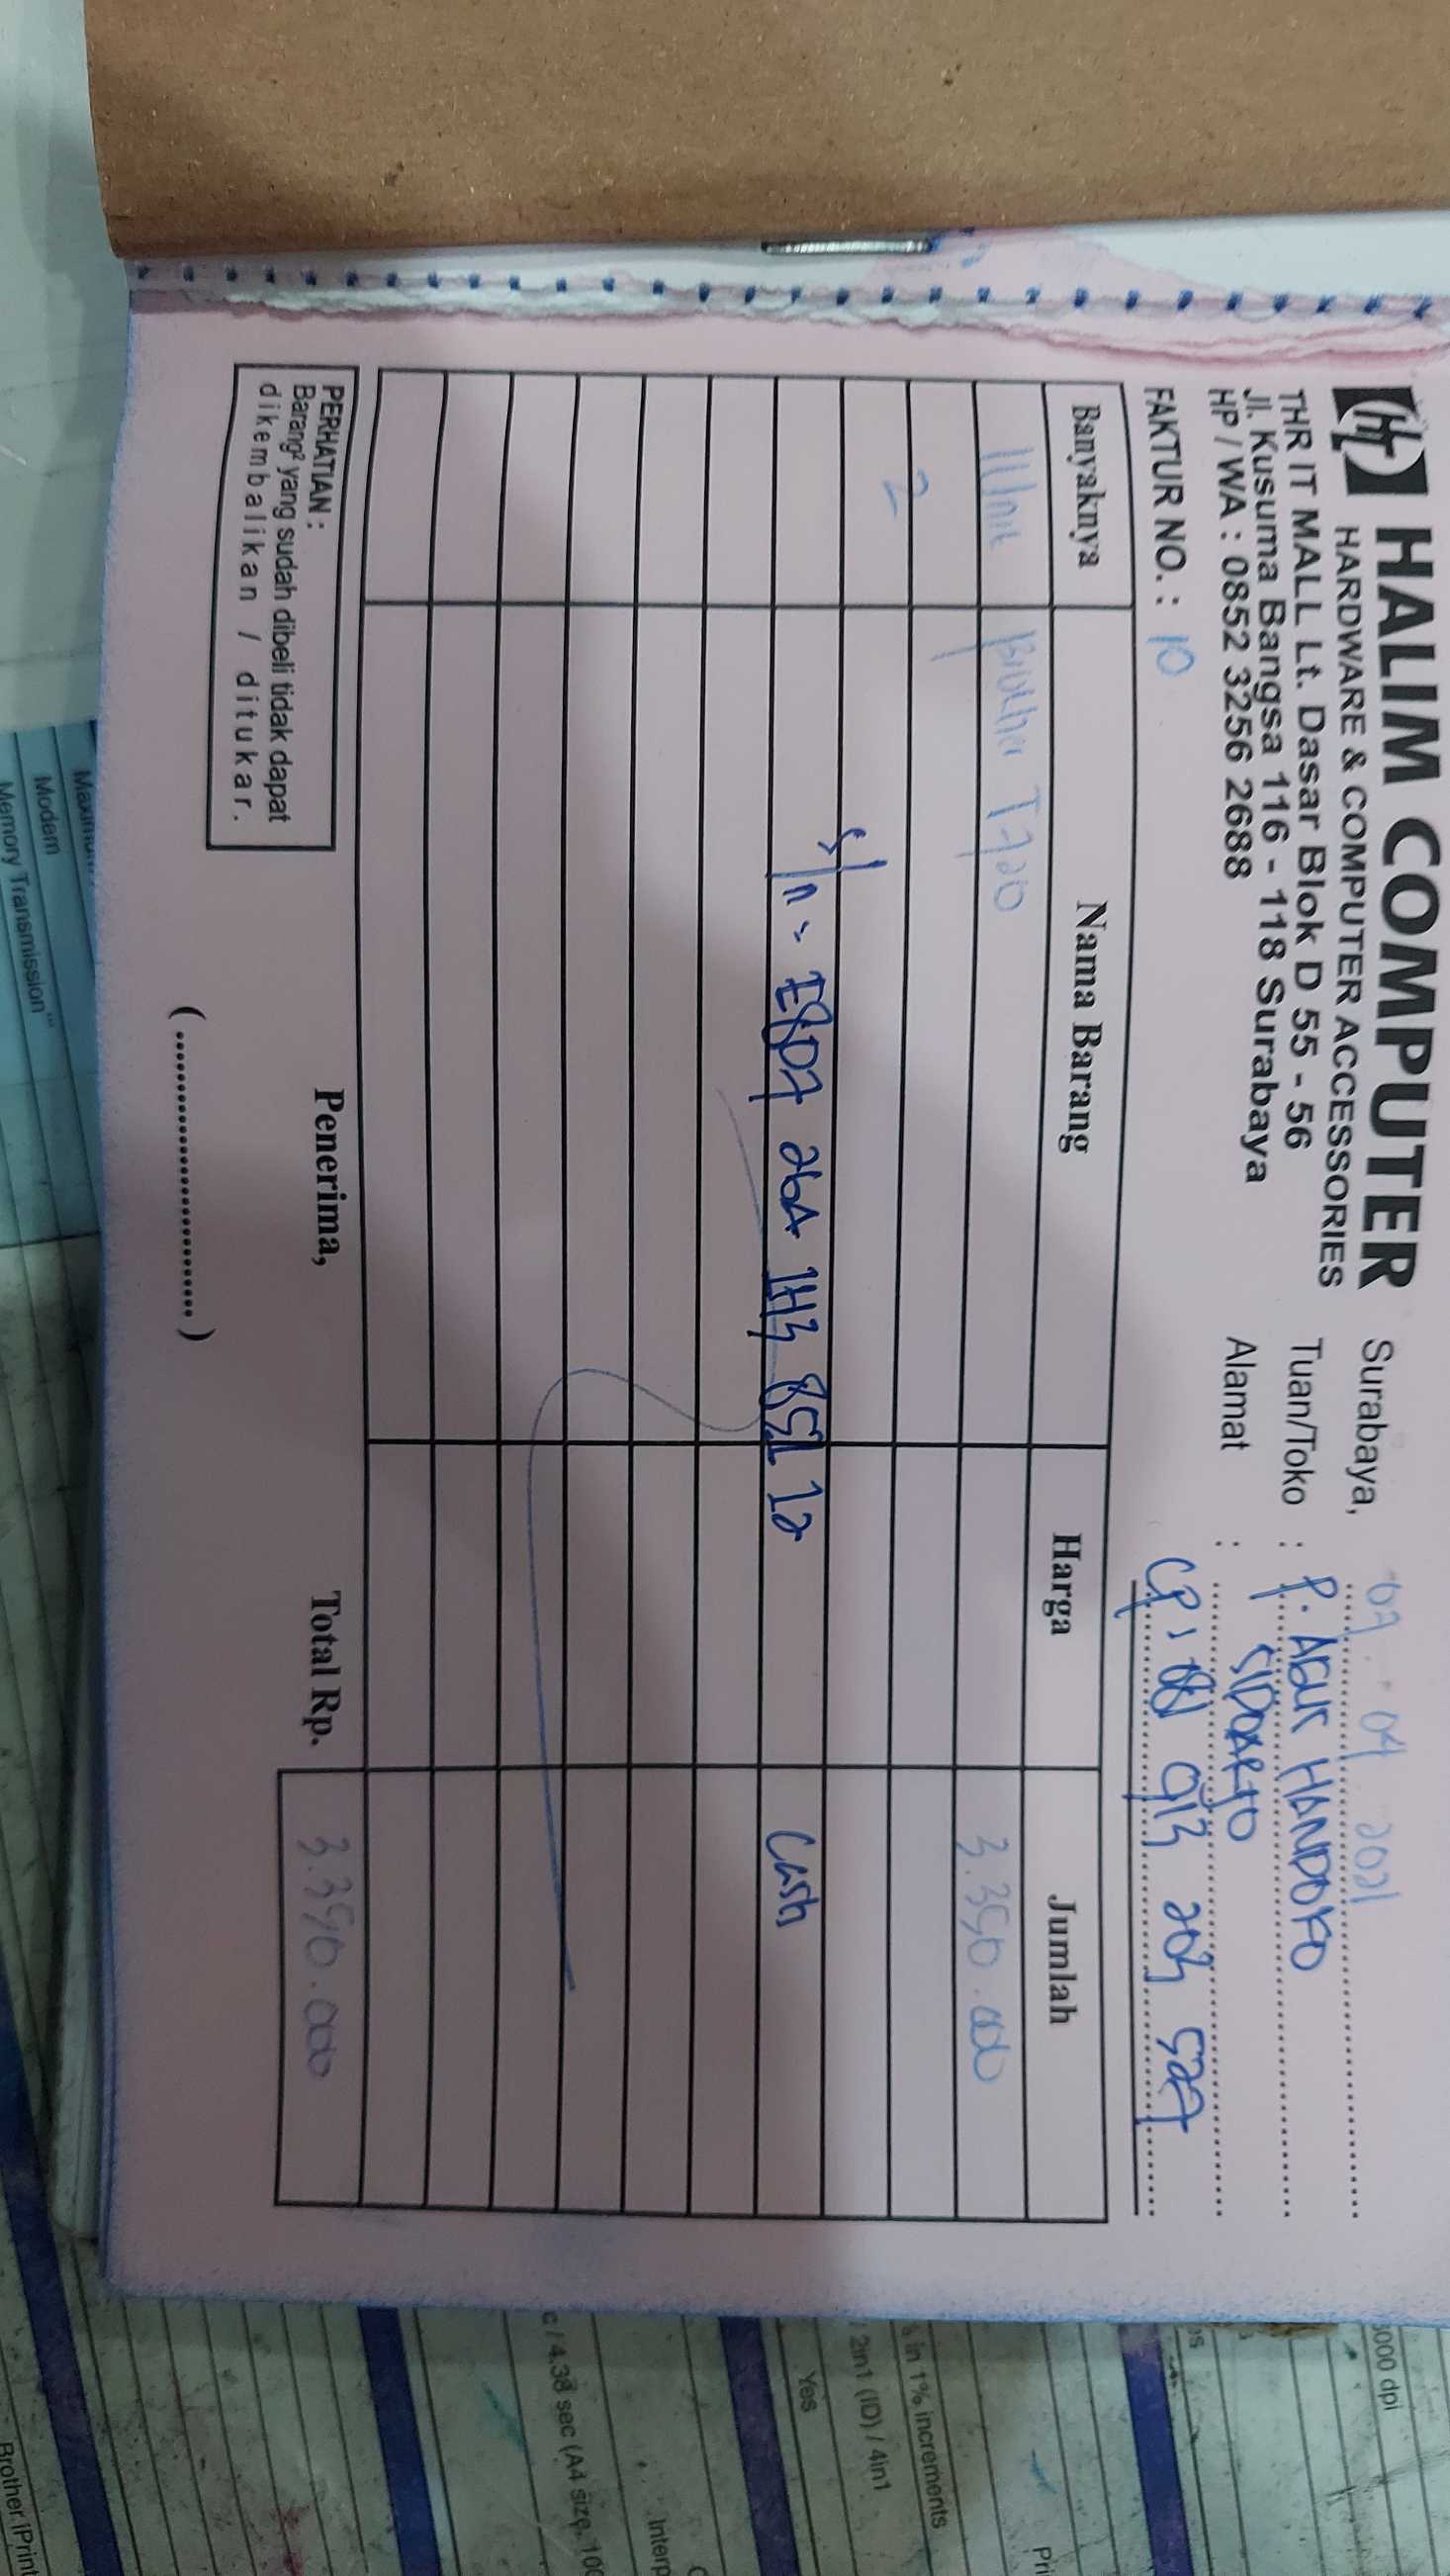 HALIM COMPUTER
HARDWARE & COMPUTER ACCESSORIES
THR IT MALL Lt. Dasar Blok D 55 - 56
Jl. Kusuma Bangsa 116 - 118 Surabaya
HP / WA : 0852 3256 2688
FAKTUR NO. : 10
Surabaya, 07 - 04 2021
Tuan/Toko : P. AGUS HANDOKO
Alamat : SIDOARJO
CP : 081 913 203 527
Banyaknya Nama Barang Harga Jumlah
1 Unit Brother T720 3.390.000
2
s/n : E8D7 26A 1H3 851 12 Cash
PERHATIAN :
Barang² yang sudah dibeli tidak dapat
dikembalikan / ditukar.
Penerima,
(........................)
Total Rp. 3.390.000
3000 dpi
in 1% increments
2in1 (ID) / 4in1
Yes
4.38 sec (A4 size,
Modem
Memory Transmission